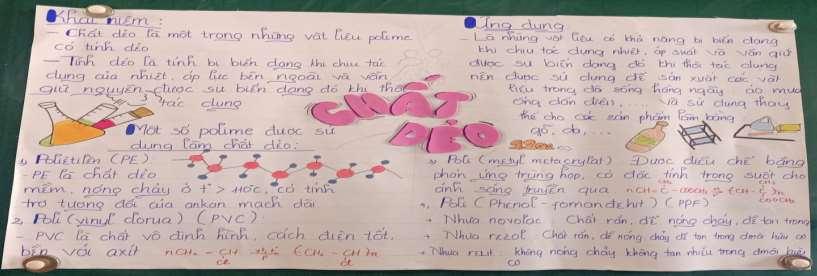 Khái niệm :
- Chất dẻo là một trong những vật liệu polime
có tính dẻo
- Tính dẻo là tính bị biến dạng khi chịu tác
dụng của nhiệt, áp lực bên ngoài và vẫn
giữ nguyên được sự biến dạng đó khi thôi
tác dụng
CHẤT
DẺO
Một số polime được sử
dụng làm chất dẻo:
1, Polietilen (PE)
- PE là chất dẻo
mềm, nóng chảy ở t° > 110°C, có tính
trơ tương đối của ankan mạch dài
2, Poli (vinyl clorua) (PVC)
- PVC là chất vô định hình, cách điện tốt,
bền với axit nCH₂ - CH (CH₂ - CH)n
Cl Cl
Ứng dụng
- Là những vật liệu có khả năng bị biến dạng
khi chịu tác dụng nhiệt, áp suất và vẫn giữ
được sự biến dạng đó khi thôi tác dụng
nên được sử dụng để sản xuất các vật
liệu trong đời sống hàng ngày áo mưa
ống dẫn điện, ..., và sử dụng thay
thế cho các sản phẩm làm bằng
gỗ, da, ...
3, Poli (metyl metacrylat) Được điều chế bằng
phản ứng trùng hợp, có đặc tính trong suốt cho
ánh sáng truyền qua
4, Poli (Phenol - fomandehit) (PPF)
+ Nhựa novolac Chất rắn, dễ nóng chảy, dễ tan trong
+ Nhựa rezol Chất rắn, dễ nóng chảy dễ tan trong dmôi hữu cơ
+ Nhựa rezit: không nóng chảy không tan nhiều trong dmôi hữu
cơ